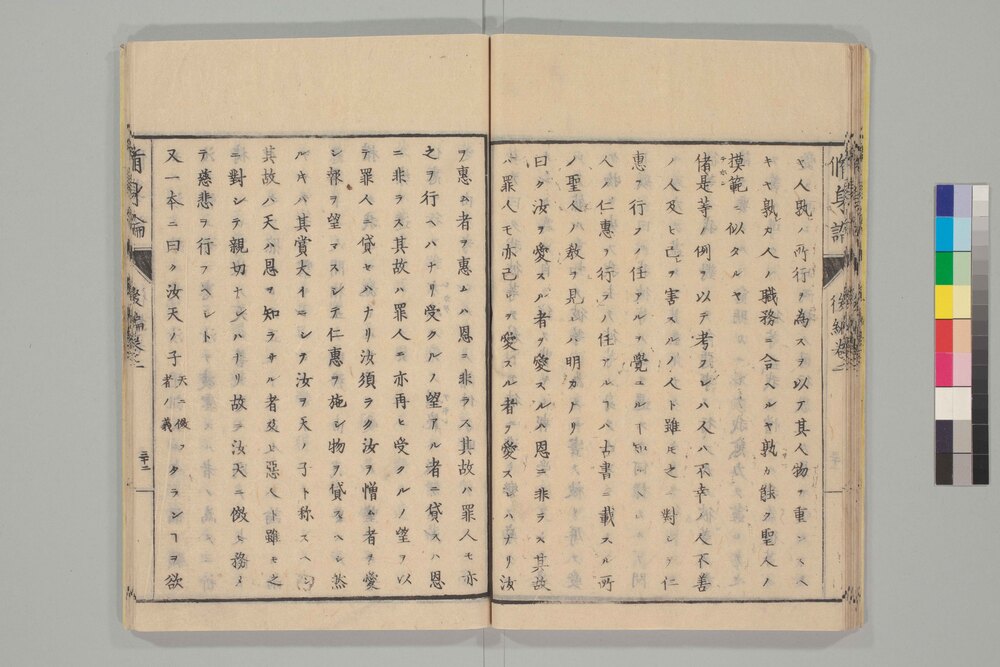 修身論
後編卷之二
キ人孰ノ所行ヲ為スヲ以テ其人物ヲ重ンスヘ
キヤ孰カ人ノ職務ニ合ヘルヤ孰カ能ク聖人ノ
摸範ニ似タルヤ
偖是等ノ例ヲ以テ考フレハ人ハ不幸人人不善
ノ人及ヒ己ヲ害スルノ人ト雖モ之ニ對シテ仁
惠ヲ行フノ任アルヲ覺ユルヿ如何様ン
人ノ仁惠ヲ行フヘキノ任アルヿハ古書ニ載スル所
ノ聖人ノ敎ヲ見後ハ明カナリ
曰ク汝ヲ愛スル者ヲ愛スルハ恩ニ非ラス其故
ハ罪人モ亦己ヲ愛スル者ヲ愛スレハナリ汝
ヲ惠ム者ヲ惠ムハ恩ニ非ラス其故ハ罪人モ亦
之ヲ行ヘハナリ受クルノ望アル者ニ貸スハ恩
ニ非ラス其故ハ罪人モ亦再ヒ受クルノ望ヲ以
テ罪人ニ貸セハナリ汝須ヲク汝ヲ憎ム者ヲ愛
シ報ヲ望マスシテ仁惠ヲ施シ物ヲ貸スヘシ然
ルキハ其賞大イニシテ汝ヲ天ノ子ト称スヘシ
其故ハ天ハ恩ヲ知ラサル者及ヒ惡人ト雖モ之
ニ對シテ親切ナレハナリ故ニ汝天ニ傚ヒ務メ
テ慈悲ヲ行フヘシト
又一本ニ曰ク汝天ノ子天ニ傚フ者ノ義タランヿヲ欲
脩身論
後編卷之二
三十二